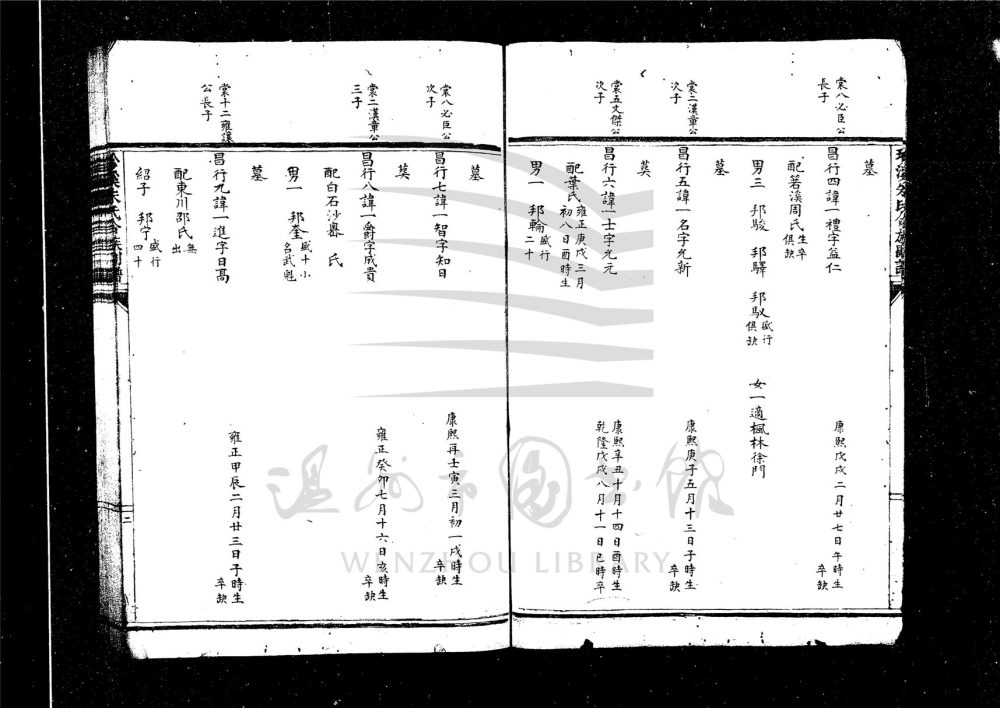 墓
棠八必臣公
長子
昌行四諱一禮字益仁
康熙戊戌二月廿七日午時生
卒缺
配箬溪周氏生卒
俱缺
男三 邦駿 邦驛 邦馭盛行
俱缺
女一適楓林徐門
墓
棠二漢章公
次子
昌行五諱一名字允新
康熙庚子五月十三日子時生
卒缺
墓
棠五文傑公
次子
昌行六諱一士字允元
康熙辛丑十月十四日酉時生
乾隆戊戌八月十一日巳時卒
配葉氏雍正庚戌三月
初八日酉時生
男一 邦輪盛行
二十
墓
棠八必臣公
次子
昌行七諱一智字知日
康熙再壬寅三月初一戌時生
卒缺
墓
棠二漢章公
三子
昌行八諱一爵字成貴
雍正癸卯七月十六日亥時生
卒缺
配白石沙嶴 氏
男一 邦奎盛十小
名武魁
墓
棠十二雍謨
公長子
昌行九諱一進字日高
雍正甲辰二月廿三日子時生
卒缺
配東川邵氏無
出
紹子 邦守盛行
四十
二
溫州市圖書館
WENZHOU LIBRARY